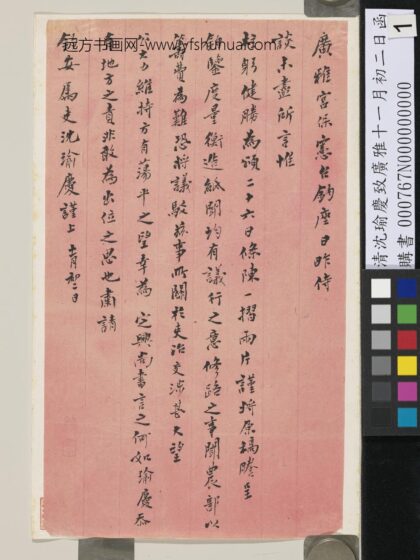 廣雅宮保憲台鈞座日昨侍
談未盡所言惟
起躬健勝為頌二十六日條陳一摺兩片謹將原稿謄呈
鈞鑒度量衡進紙聞均有議行之意修路之事聞農部以
籌費為難恐將議駁按事所關於吏治交涉甚大望
公力維持方有蕩平之望幸為定興尚書言之何如瑜慶忝
有地方之責非敢為出位之思也肅請
鈞安屬吏沈瑜慶謹上 十一月初二日
远方书画网-www.yfshuhua.com
清沈瑜慶致廣雅十一月初二日函
購書 000767N000000000
1